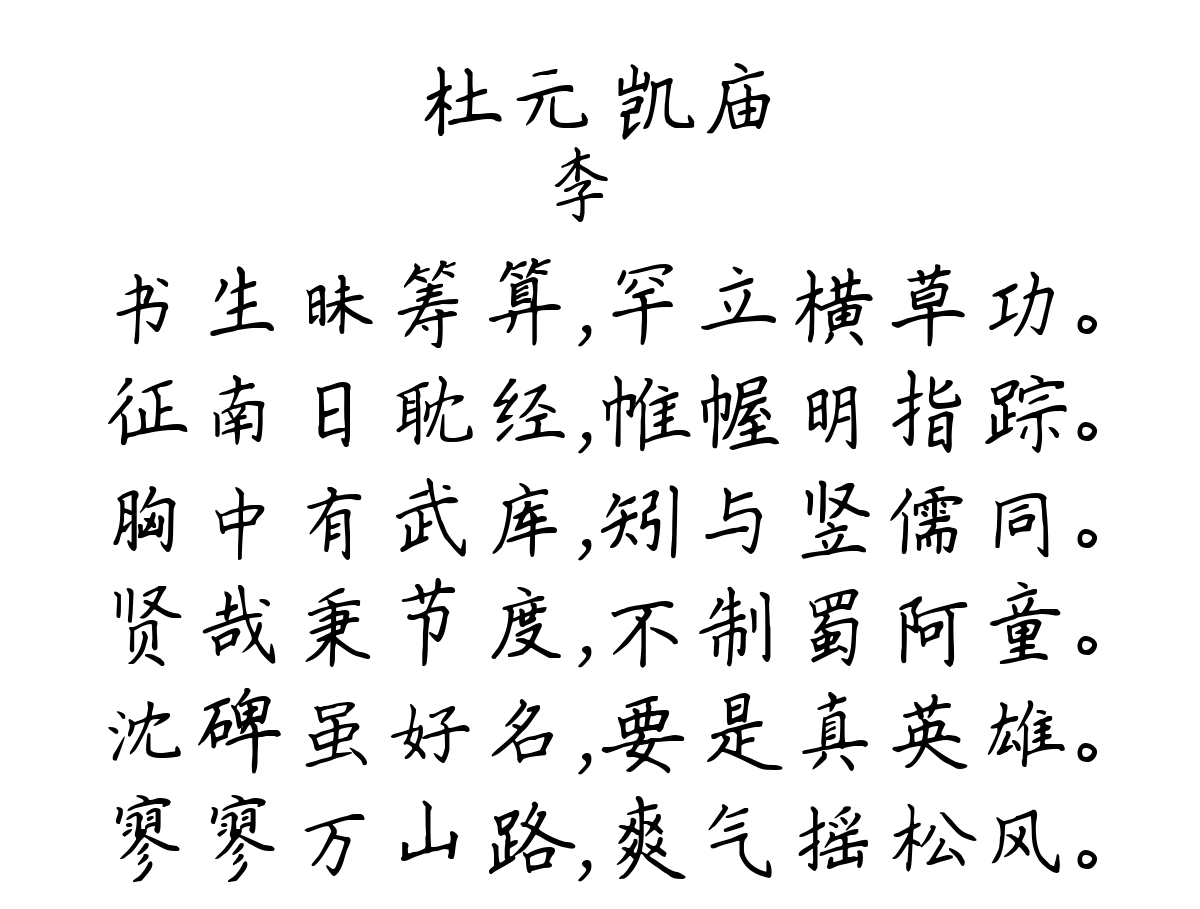 杜元凯庙
李
书生昧筹算,罕立横草功。
征南日耽经,帷幄明指踪。
胸中有武库,矧与竖儒同。
贤哉秉节度,不制蜀阿童。
沈碑虽好名,要是真英雄。
寥寥万山路,爽气摇松风。